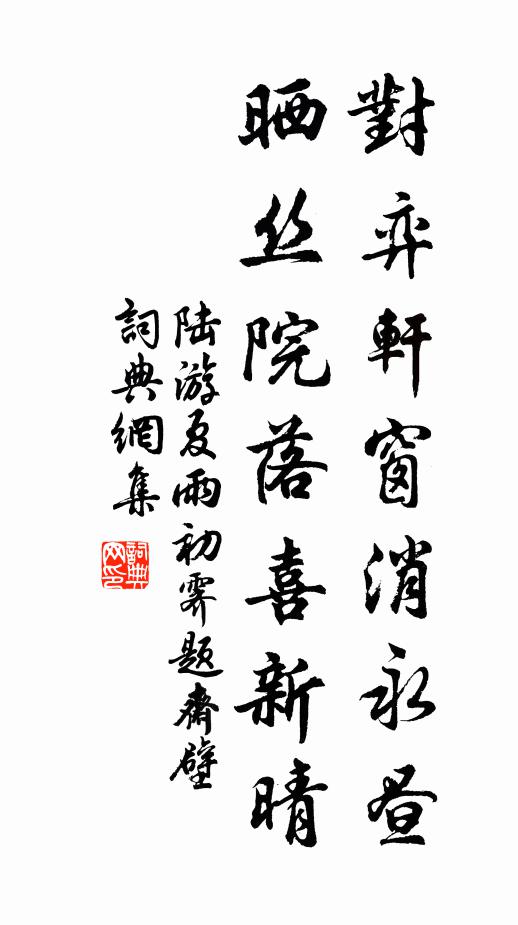 對弈軒窗消永昼
晒丝院落喜新晴
陆游夏雨初霽題齋壁
詞典網集
詞典网印